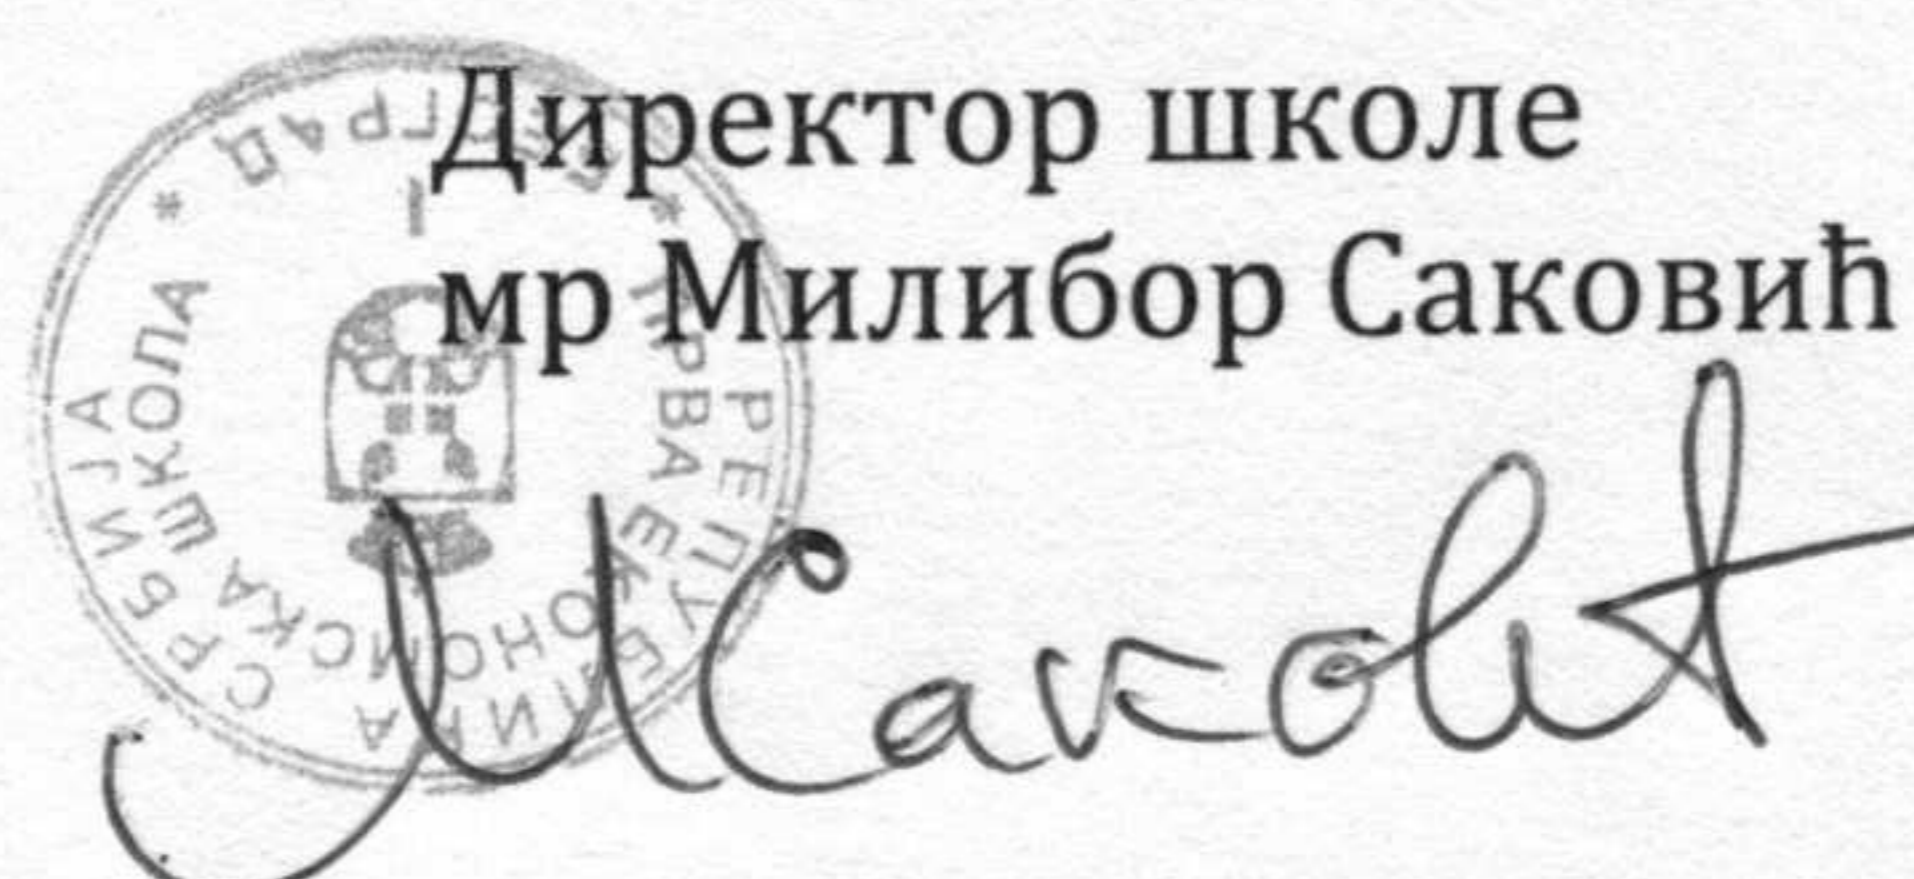 Директор школе
мр Милибор Саковић
РЕПУБЛИКА СРБИЈА
* ПРВА ЕКОНОМСКА ШКОЛА *
БЕОГРАД
I
МСаковић